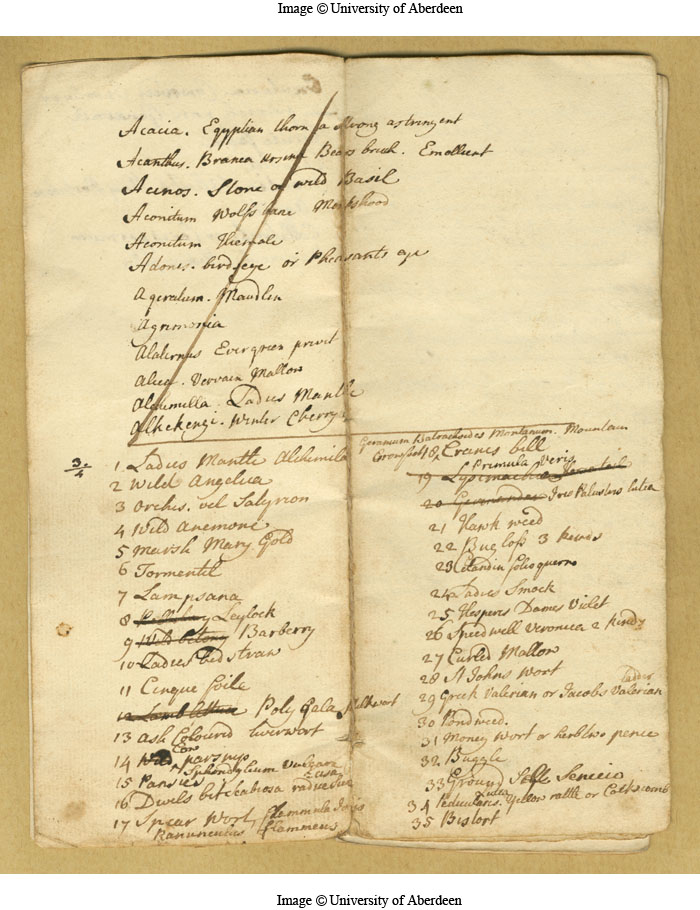 Image © University of Aberdeen
Acacia. Egyptian thorn a strong astringent
Acanthus. Branca ursina Bears brich. Emollient
Acinos. Stone or wild Basil
Aconitum Wolfs bane Monkshood
Aconitum Hiemale
Adonis. birds eye or Pheasants eye
Ageratum. Maudlin
Agrimonia
Alaternus Evergreen privet
Alcea. Vervain Mallow
Alchimilla. Ladies Mantle
Alkekengi. Winter Cherry
3/4
1 Ladies Mantle Alchimila
2 Wild Angelica
3 Orchis. vel Satyrion
4 Wild Anemone
5 Marsh Mary Gold
6 Tormentil
7 Lampsana
8 Leylock
9 Wild betony Barberry
10 Ladies bed straw
11 Cinque foile
12 Poly Gala Milkwort
13 Ash Coloured liverwort
14 Wild Cow parsnip
Sphondylium Vulgare
15 Pansies
16 Divels bit scabiosa radice succisa
17 Spear Wort, flammula Jovis
Ranunculus flammeus
Geranium Batrachoides Montanum. Mountain
Crowfoot 18 Cranes bill
Primula Veris
19 Lysimachia
20 Iris Palustris lutea
21 Hawk weed
22 Bugloss 3 kinds
23 Celandin
24 Ladies Smock
25 Hesperis Dames Violet
26 Speedwell Veronica 2 kinds
27 Curled Mallow
28 St Johns Wort
ladder
29 Greek Valerian or Jacobs Valerian
30 Pondweed.
31 Money Wort or herb two pence
32 Buggle
33 Ground Selle Senecio
34 Pedicularis. lutea Yellow rattle or Cockscomb
35 Bistort
Image © University of Aberdeen